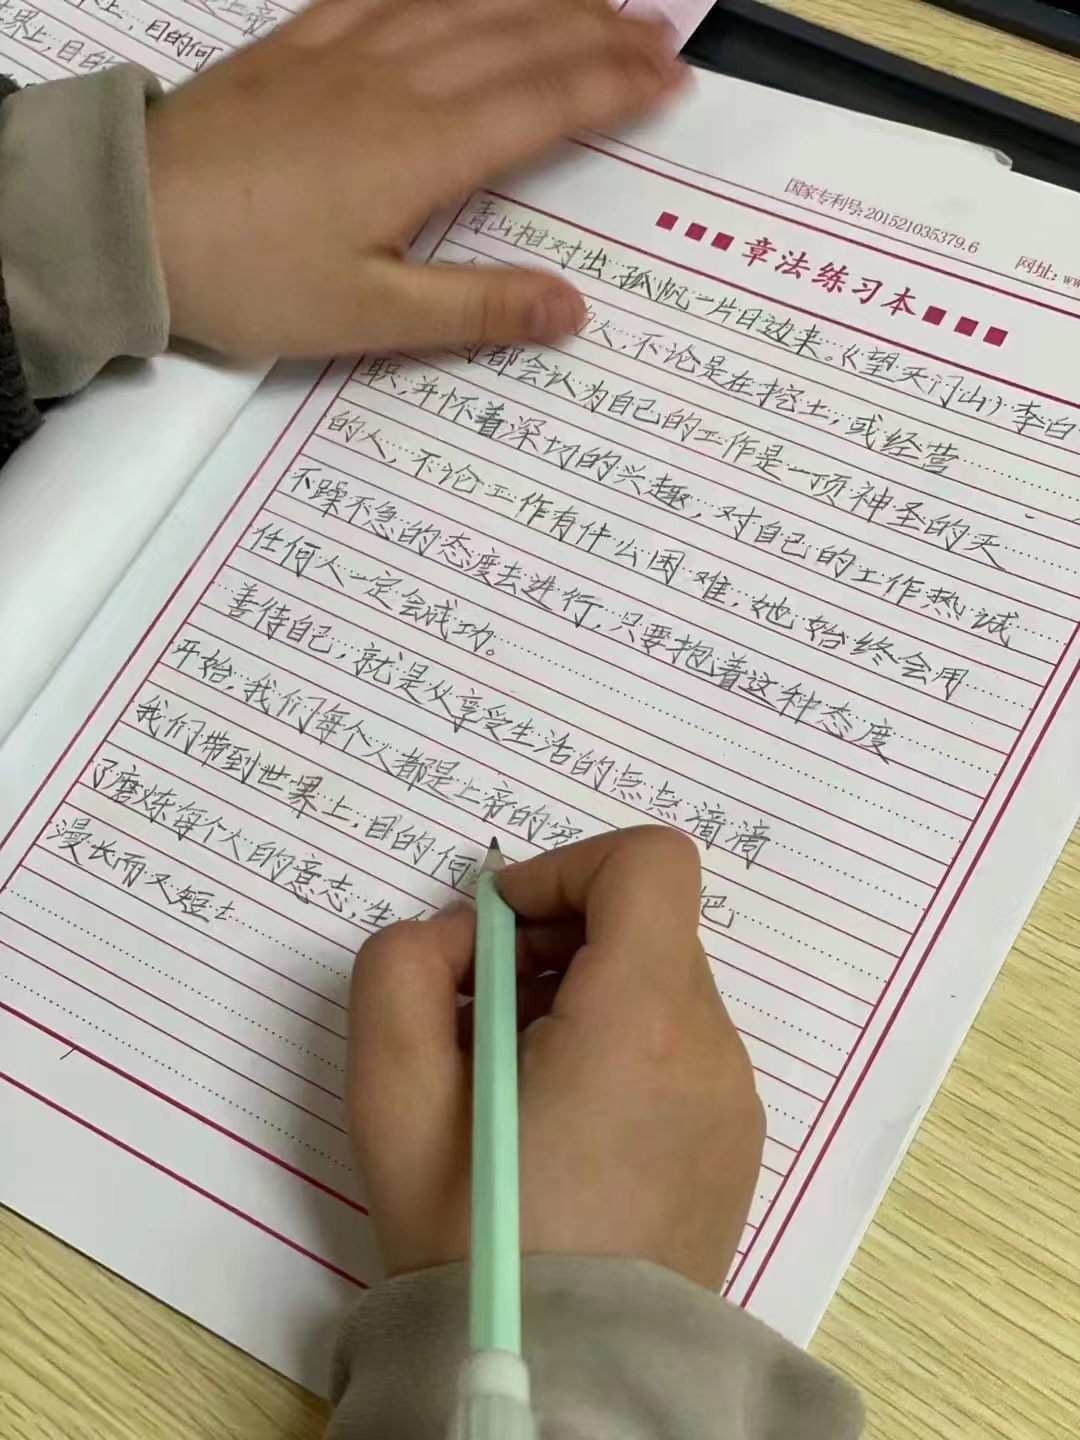 上，目的何
世界上，目的
国家专利号：201521035379.6
网址：ww
章法练习本
青山相对出，孤帆一片日边来。《望天门山》李白
人，不论是在挖土，或经营
都会认为自己的工作是一项神圣的天
职，并怀着深切的兴趣，对自己的工作热诚
的人，不论工作有什么困难，她始终会用
不躁不急的态度去进行，只要抱着这种态度
任何人一定会成功。
善待自己，就是从享受生活的点点滴滴
开始，我们每个人都是上帝的宠 把
我们带到世界上，目的何
了磨炼每个人的意志，生
漫长而又短